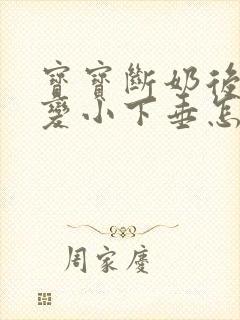 寶寶斷奶後
變小下垂怎
周家慶